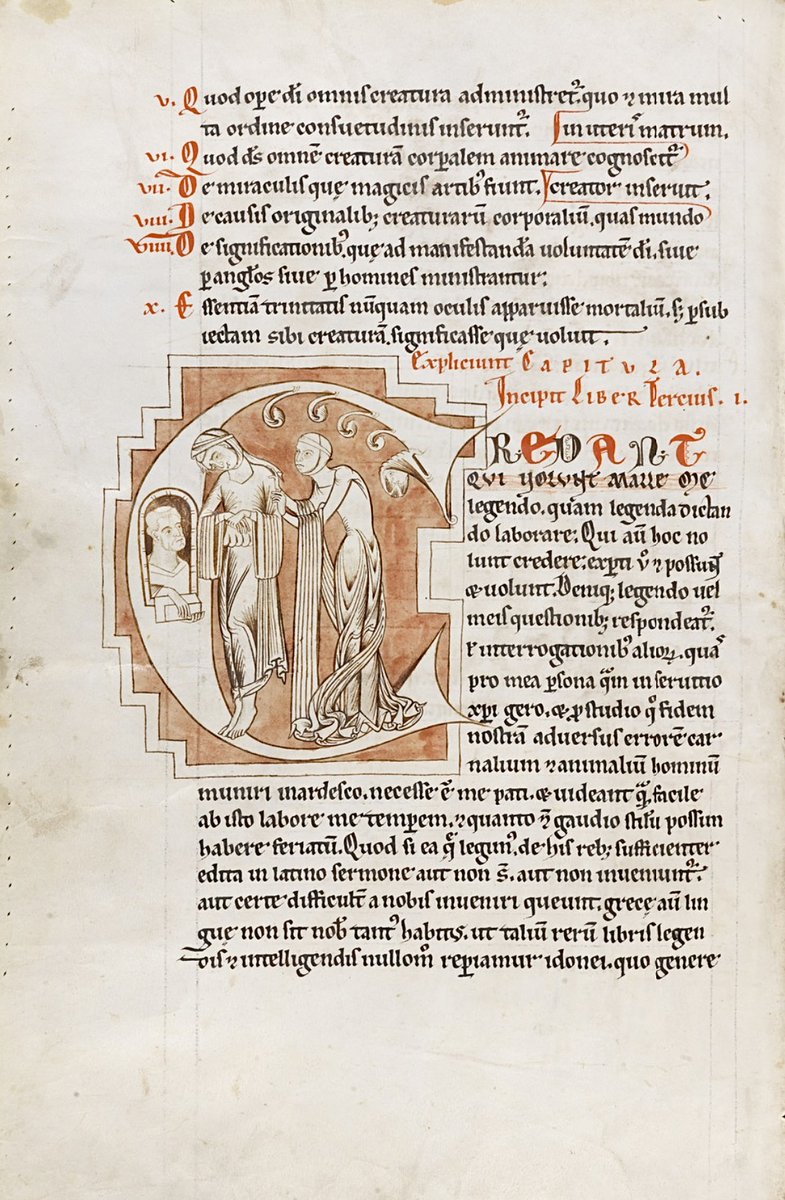 v. Quod opE dī omnis creatura administret᷑. quo ⁊ mira mul
ta ordine consuetudinis inserunt᷑. in uteri᷑ matrum.
vi. Quod ds̄ omnē creaturā corp̱alem animare cognoscit᷑
vii. De miraculis quę magicis artib; fiunt. creator inseruit.
viii. De causis originalib; creaturarū corporaliū. quas mundo
viiii. De significationib᷒. quę ad manifestanda uoluntatē dī. siue
p̱ angl̄os siue p̱ homines ministrantur:
x. Essentiā trinitatis nūquam oculis apparuisse mortaliū. s; p̱ sub
iectam sibi creaturā. significasse quę uoluit.
Expliciunt CAPITULA.
Incipit LIBER Tercius. i.
CREDANT
QUI UOLUNT MALLE ME
legendo. quam legenda dictan
do laborare. Qui aū hoc no
lunt credere: experiri ū ⁊ possunt
& uolunt. Deniq; legendo uel
meis questionib; respondeat᷑.
ł interrogationib᷒ alioꝝ. quas
pro mea p̱sona quā in seruitio
xp̄i gero. & ꝓ studio q̊ fidem
nostrā aduersus errorē car
nalium ⁊ animaliū hominū
muniri inardesco. necesse ē me pati. & uideant q̄. facile
ab isto labore me temperem. ⁊ quanto &̄ gaudio stilū possim
habere feriatū. Quod si ea q̄ legim᷒. de his reb; sufficienter
edita in latino sermone aut non s̄. aut non inueniunt᷑.
aut certe difficult̄ a nobis inueniri queunt. grecę aū lin
guę non sit nob̄ tant᷒ habitus. ut taliū rerū libris legen
dis ⁊ intelligendis nullom̊ rep̱iamur idonei. quo genere